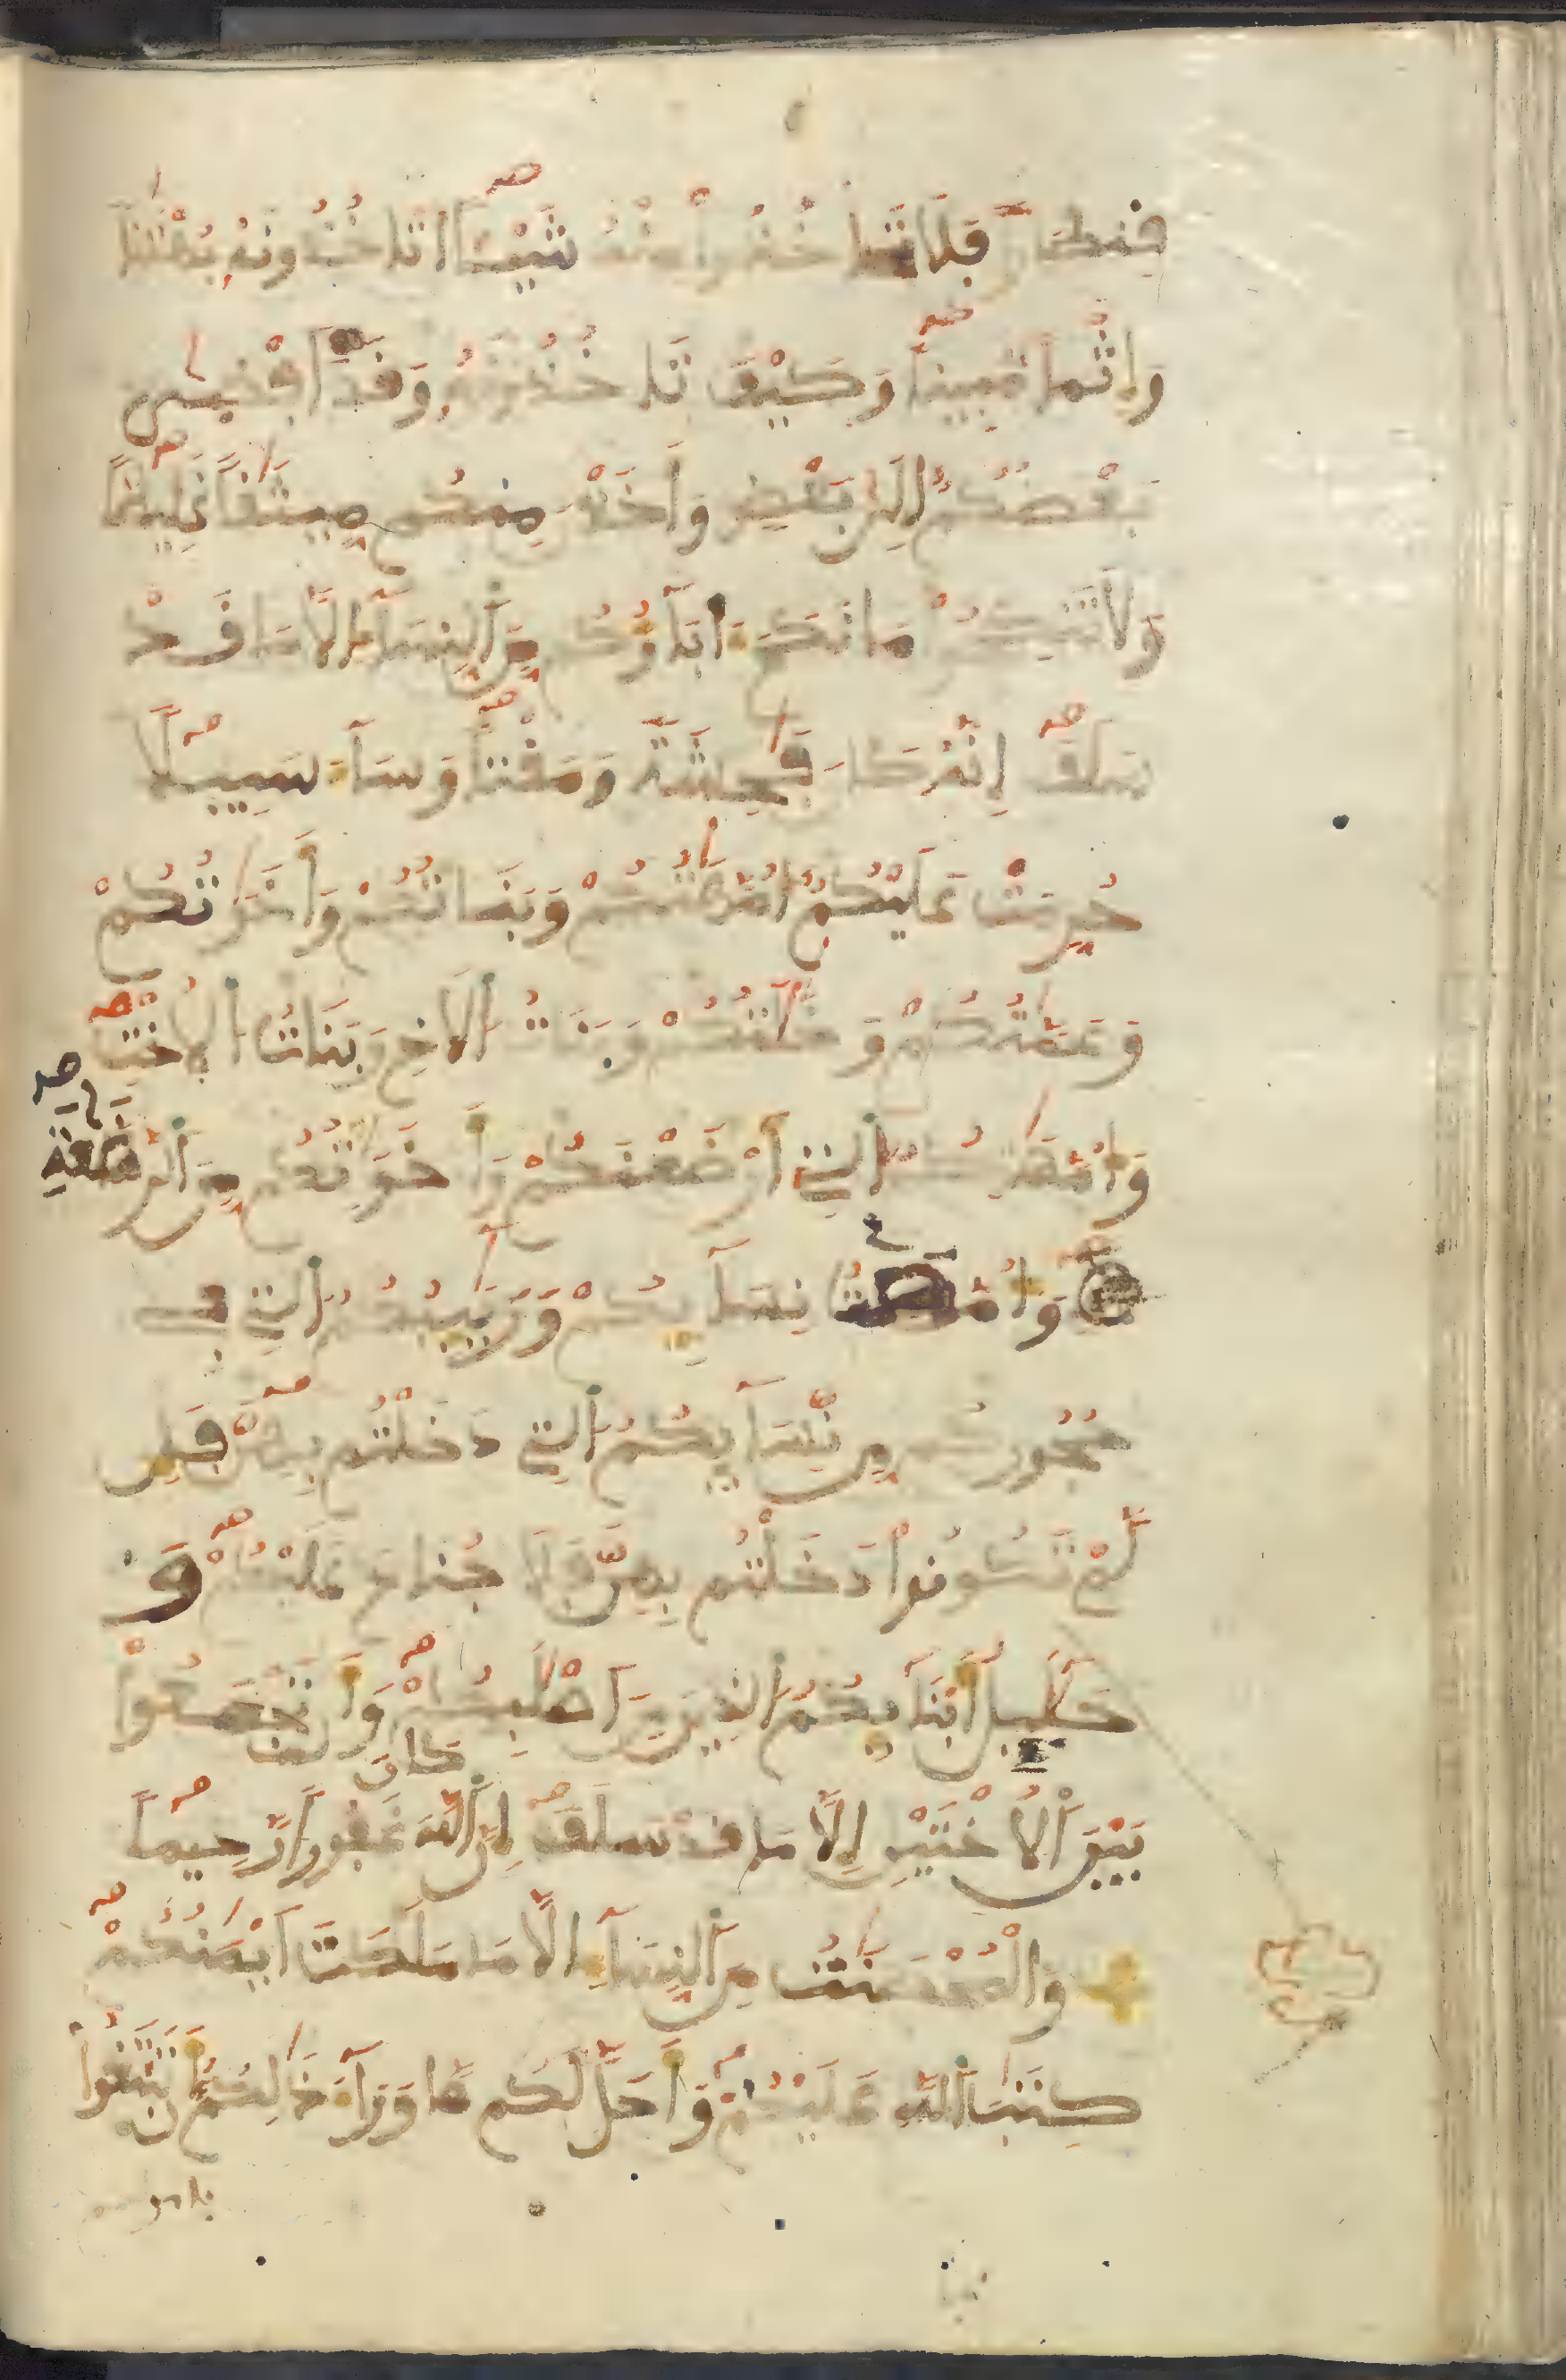 فِنطَارًا فَلَا تَاخُذُواْ مِنْهُ شَيْـًٔا اتَاخُذُونَهُۥ بُهْتَٰنًا
وَإِثْمًا مُّبِينًا وَكَيْفَ تَاخُذُونَهُۥ وَقَدَ اَفْضٜىٰ
بَعْضُكُمُۥٓ إِلَىٰ بَعْضٍ وَأَخَذْنَ مِنكُم مِّيثَٰقًا غَلِيظًا
وَلَا تَنكِحُواْ مَا نَكَحَ ءَابَآؤُكُم مِّنَ اَ۬لنِّسَآءِ الَّا مَا قَدْ
سَلَفَ إِنَّهُۥ كَانَ فَٰحِشَةً وَمَقْتًا وَسَآءَ سَبِيلًا
حُرِّمَتْ عَلَيْكُمُۥٓ أُمَّهَٰتُكُمْ وَبَنَاتُكُمْ وَأَخَوَٰتُكُمْ
وَعَمَّٰتُكُمْ وَخَٰلَٰتُكُمْ وَبَنَاتُ اُ۬لَاخِ وَبَنَاتُ اُ۬لُاخْتِ
وَأُمَّهَٰتُكُمُ اُ۬لتِے أَرْضَعْنَكُمْ وَأَخَوَٰتُكُم مِّنَ اَ۬لرَّضَٰعَةِ
وَأُمَّهَٰتُ نِسَآئِكُمْ وَرَبَٰٓئِبُكُمُ اُ۬لتِے فِے
حُجُورِكُم مِّن نِّسَآئِكُمُ اُ۬لتِے دَخَلْتُم بِهِنَّ فَإِن
لَّمْ تَكُونُواْ دَخَلْتُم بِهِنَّ فَلَا جُنَاحَ عَلَيْكُمْ وَ
حَلَٰٓئِلُ أَبْنَآئِكُمُ اُ۬لذِينَ مِنَ اَصْلَٰبِكُمْ وَأَن تَجْمَعُواْ
بَيْنَ اَ۬لُاخْتَيْنِ إِلَّا مَا قَدْ سَلَفَ إِنَّ اَ۬للَّهَ كَانَ غَفُورًا رَّحِيمًا
وَالْمُحْصَنَٰتُ مِنَ اَ۬لنِّسَآءِ الَّا مَا مَلَكَتَ اَيْمَٰنُكُمْ
كِتَٰبَ اَ۬للَّهِ عَلَيْكُمْ وَأَحَلَّ لَكُم مَّا وَرَآءَ ذَٰلِكُمُۥٓ أَن تَبْتَغُواْ